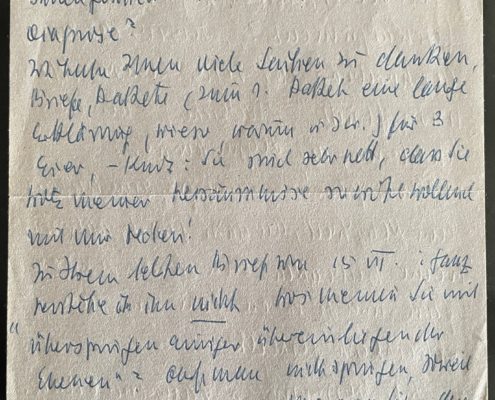 Diagnose?
Ich habe Ihnen viele Sachen zu danken,
Briefe, Pakete (zum 1. Paket eine lange
Erklärung, wieso warum u.s.w.) für 3
Eier, – Kurz: Sie sind sehr nett, dass Sie
trotz meiner Versäumnisse so wohlwollend
mit mir reden!
Zu Ihrem letzten Brief vom 15 VI. : ganz
verstehe ich ihn nicht was meinen Sie mit
"überspringen einiger übereinanderliegender
Ebenen"? Darf man nicht springen, soweit